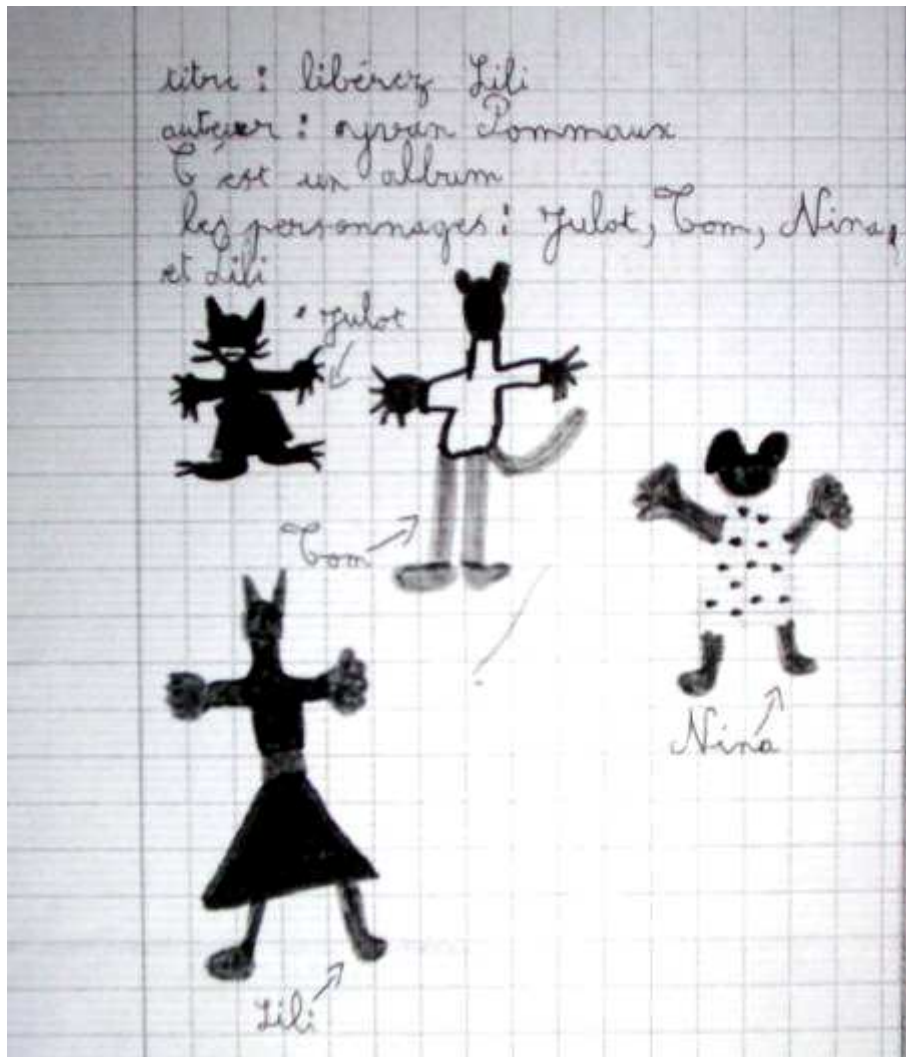 titre : libérez Lili
auteur : yvan Pommaux
C'est un album
les personnages : Julot, Tom, Nina,
et Lili
Julot
Tom
Nina
Lili